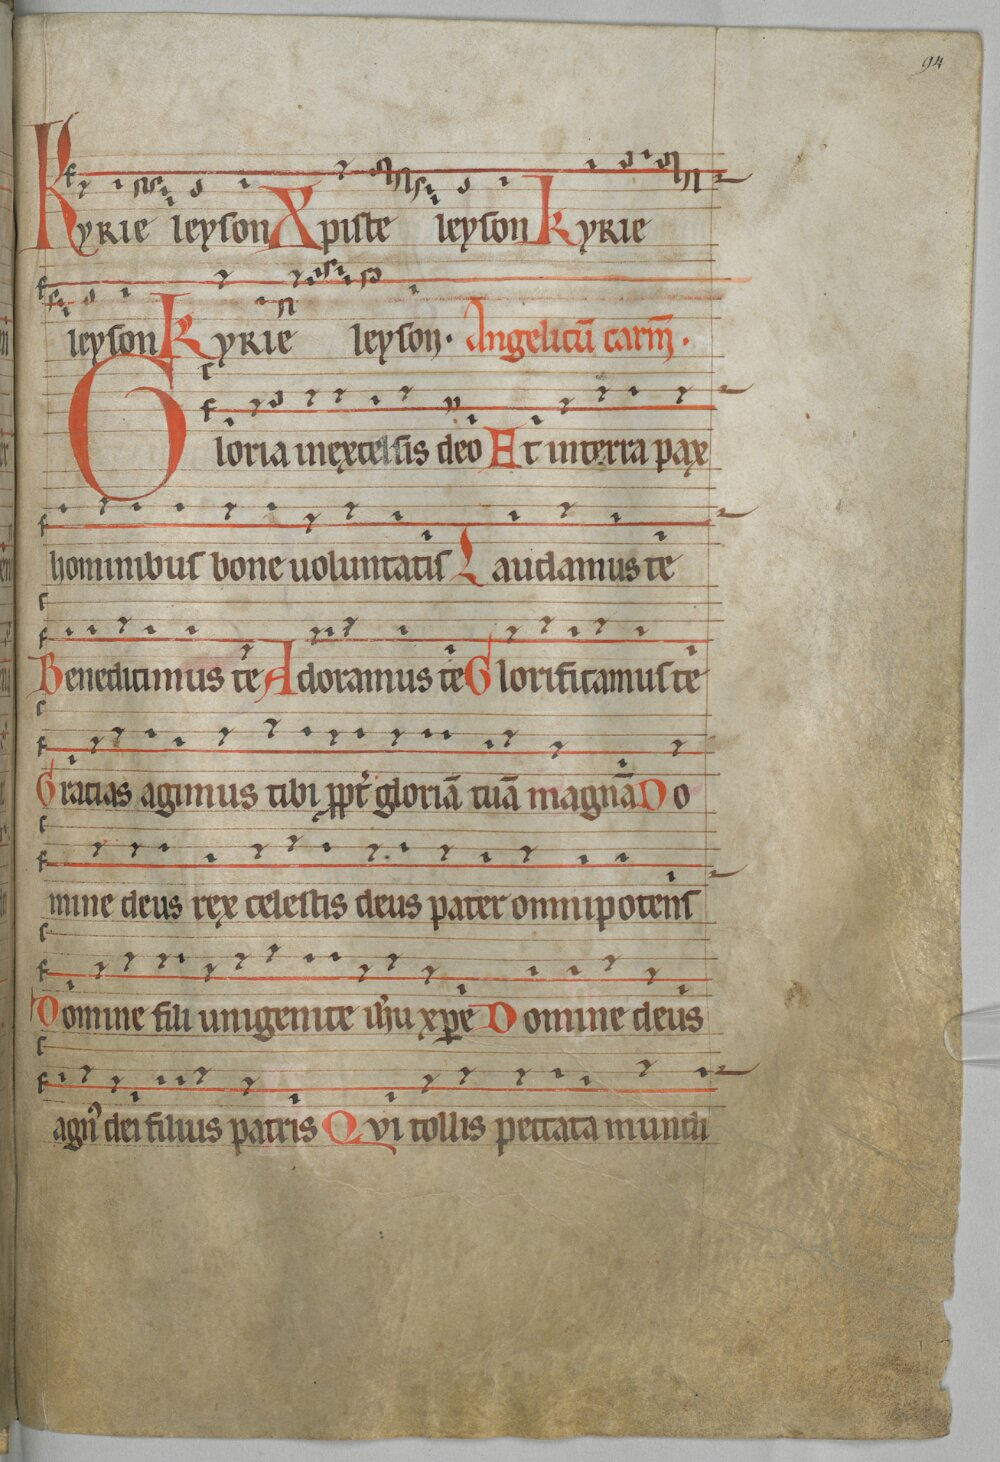 94
Kyrie ieyson Xpiste ieyson kyrie
ieyson kyrie leyson. Angelicū carm̄.
Gloria inexcelsis deo Et interra pax
hominibus bone uoluntatis Laudamus te
Benedicimus te Adoramus te Glorificamus te
Gratias agimus tibi ꝓpt̄ gloriā tuā magnā Do
mine deus rex celestis deus pater omnipotens
Domine fili unigenite ih̄u xp̄e Domine deus
agn᾿ dei filius patris Qvi tollis peccata mundi